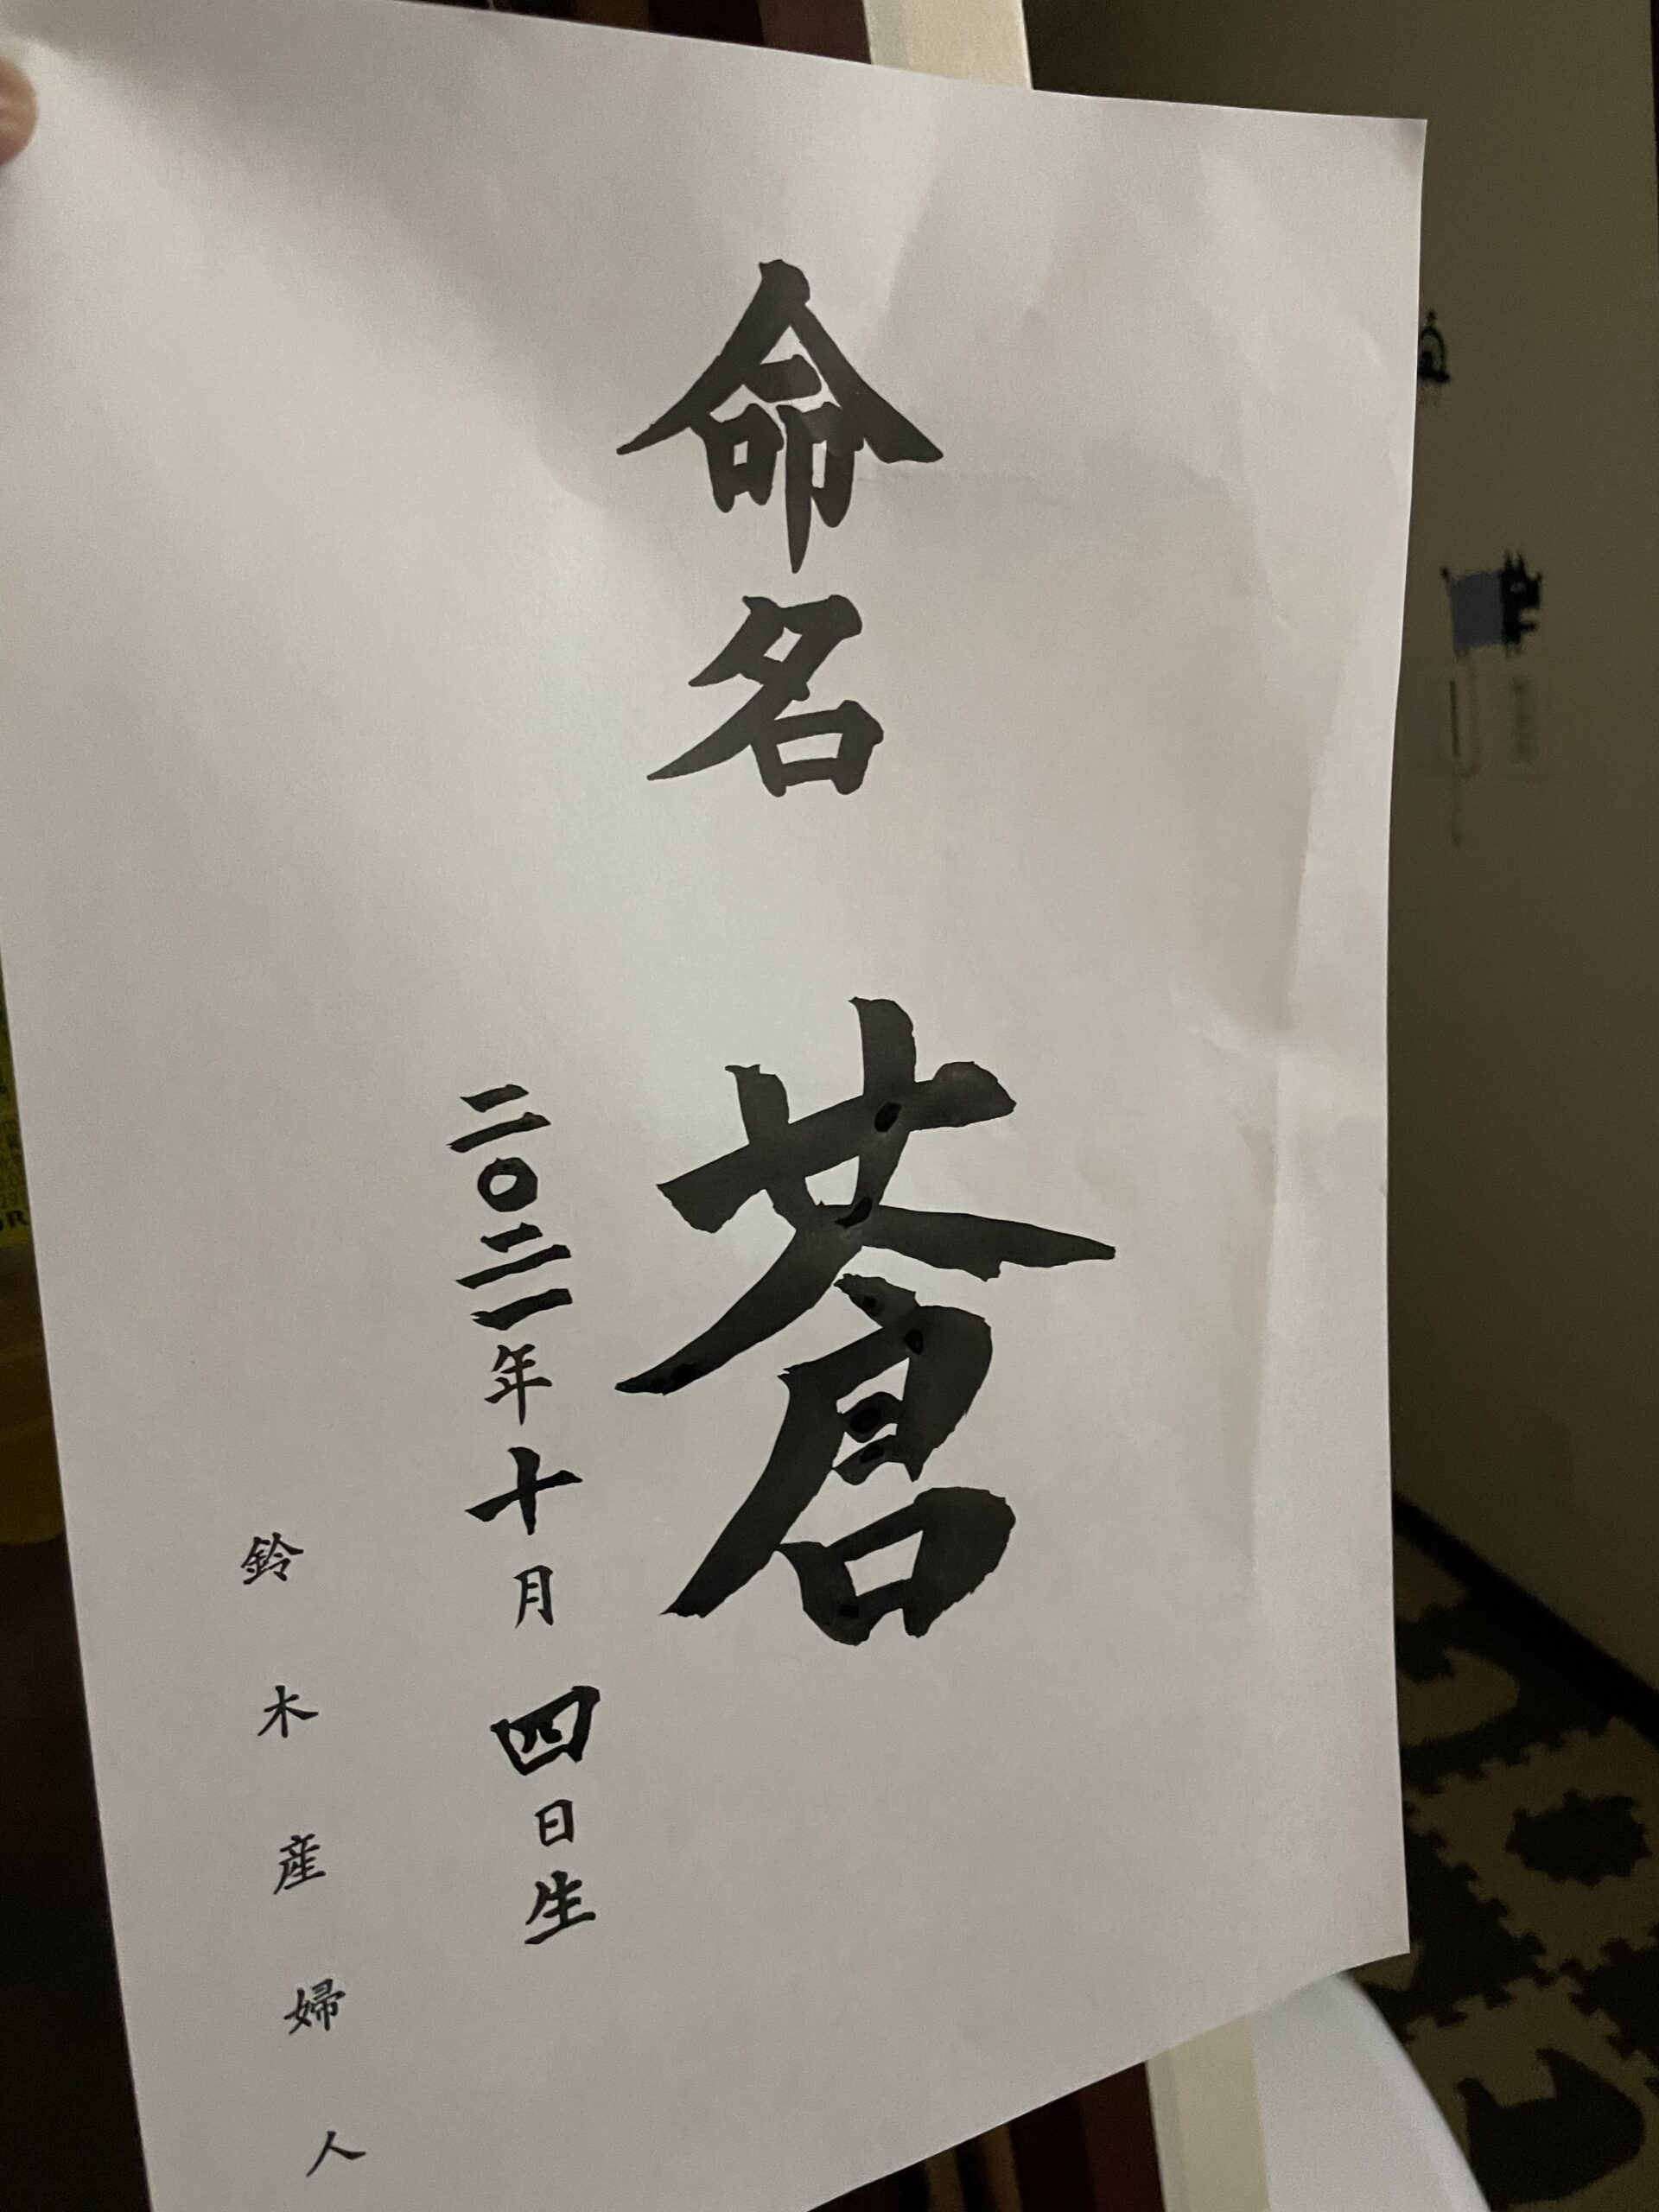 命名
蒼
二〇二一年十月四日生
鈴木産婦人